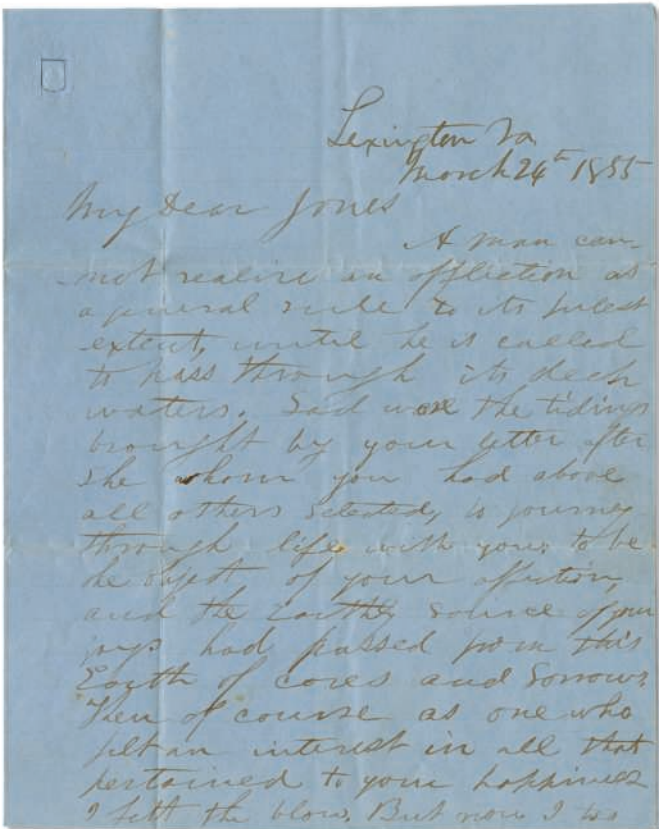 Lexington Va
March 24th 1855
My Dear Jones
A man can-
not realize an affliction as
a general rule to its fulest
extent, until he is called
to pass through its deep
waters. Sad were the tidings
brought by your letter after
she whom you had above
all others selected, to journey
through life with you, to be
the object of your affection,
and the earthly source of your
joys had passed from this
Earth of cares and sorrows.
Then of course as one who
felt an interest in all that
pertained to your happiness
I felt the blow. But now I too